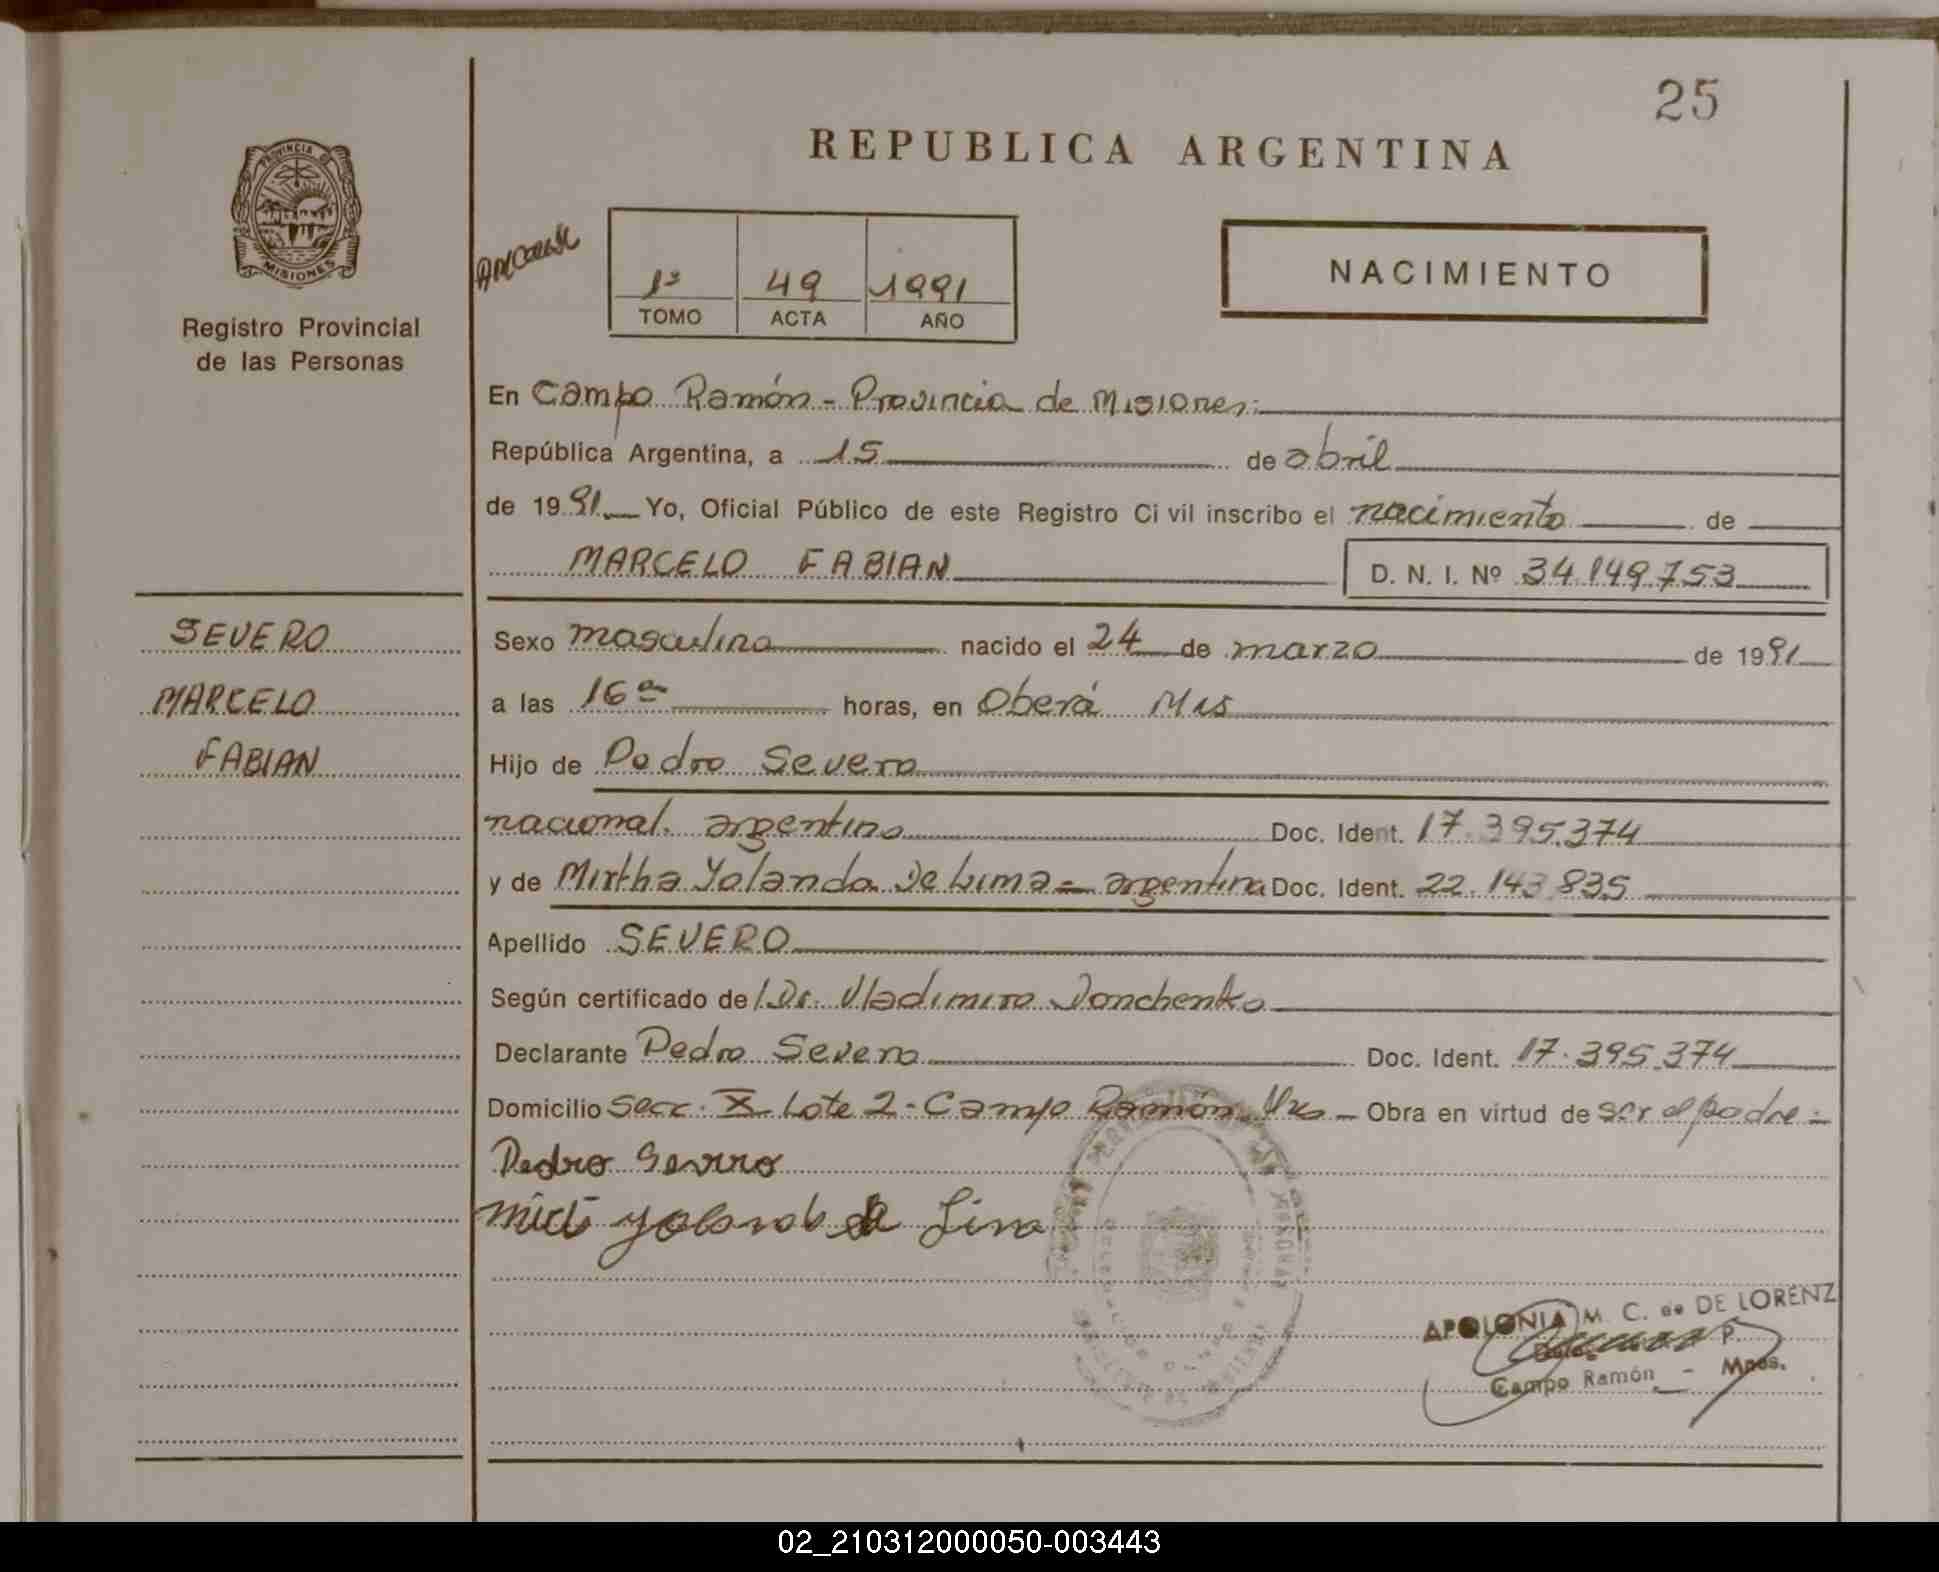 25
REPUBLICA ARGENTINA
PROVINCIA DE
MISIONES
Registro Provincial
de las Personas
1º 49 1991
TOMO ACTA AÑO
NACIMIENTO
En Campo Ramón - Provincia de Misiones.
República Argentina, a 15 de abril
de 1991 Yo, Oficial Público de este Registro Civil inscribo el nacimiento de
MARCELO FABIAN D. N. I. Nº 34.149.753
SEVERO
MARCELO
FABIAN
Sexo masculino nacido el 24 de marzo de 1991
a las 16 horas, en Oberá Mis
Hijo de Pedro Severo
nacional. argentino Doc. Ident. 17.395.374
y de Mirtha Yolanda De Lima = argentina Doc. Ident. 22.143.835
Apellido SEVERO
Según certificado del Dr. Vladimiro Donchenko
Declarante Pedro Severo Doc. Ident. 17.395.374
Domicilio Secc. X Lote 2 - Campo Ramón Mis - Obra en virtud de ser el padre =
Pedro Severo
Yolanda de Lima
APOLONIA M. C. de DE LORENZ
Campo Ramón - Mnes.
02_210312000050-003443